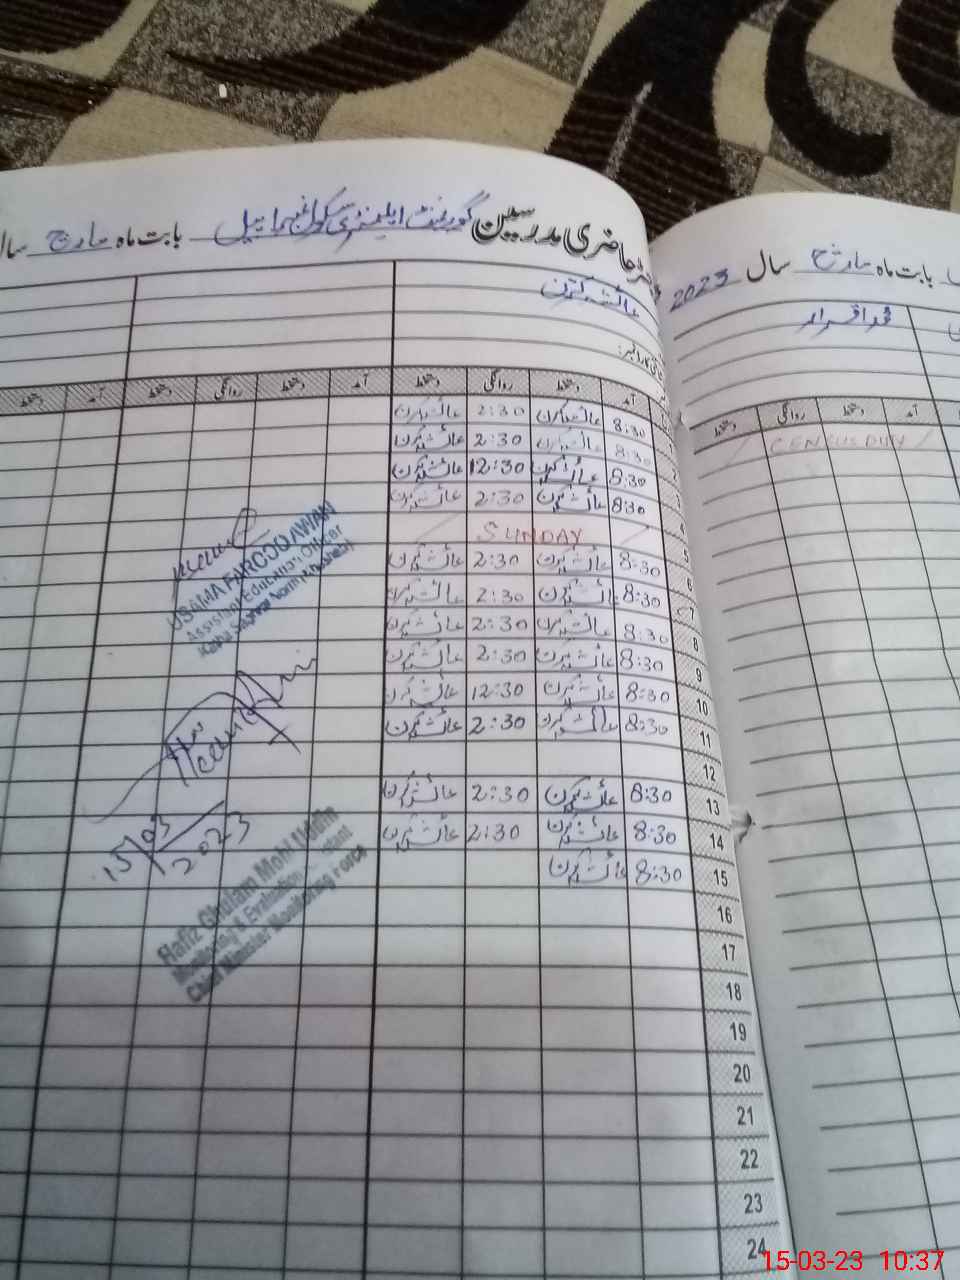 حاضری مدرسین گورنمنٹ ایلیمنٹری سکول بابت ماہ مارچ
بابت ماہ مارچ سال 2023
عائشہ کرن
محمد اقرار
آمد دستخط روانگی دستخط آمد دستخط روانگی دستخط آمد دستخط
آمد دستخط روانگی دستخط
/ CENCUS DUTY /
8:30 عائشہ کرن 2:30 عائشہ کرن
8:30 عائشہ کرن 2:30 عائشہ کرن
8:30 عائشہ کرن 12:30 عائشہ کرن
8:30 عائشہ کرن 2:30 عائشہ کرن
5 / SUNDAY /
6 8:30 عائشہ کرن 2:30 عائشہ کرن
7 8:30 عائشہ کرن 2:30 عائشہ کرن
8 8:30 عائشہ کرن 2:30 عائشہ کرن
9 8:30 عائشہ کرن 2:30 عائشہ کرن
10 8:30 عائشہ کرن 12:30 عائشہ کرن
11 8:30 عائشہ کرن 2:30 عائشہ کرن
12
13 8:30 عائشہ کرن 2:30 عائشہ کرن
14 8:30 عائشہ کرن 2:30 عائشہ کرن
15 8:30 عائشہ کرن
16
17
18
19
20
21
22
23
24
USAMA FAROOQ AWAN
Assistant Education Officer
15/03/2023
Hafiz Ghulam Mohi Uddin
Monitoring & Evaluation Assistant
Chief Minister Monitoring Force
15-03-23 10:37